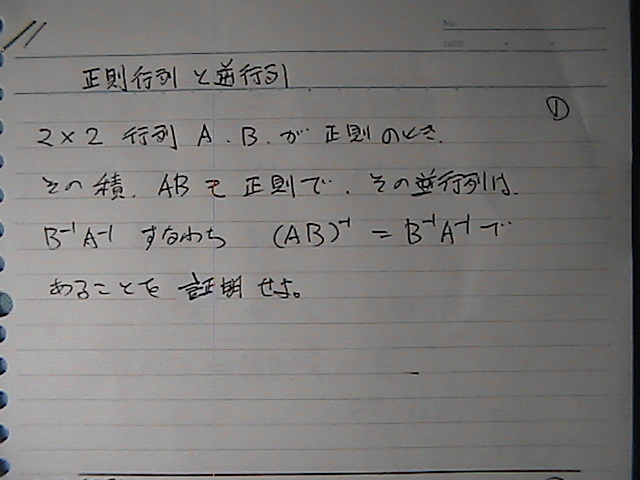 NO.
DATE
正則行列と逆行列
①
2×2 行列 A.B.が正則のとき.
その積. ABも正則で.その逆行列は.
B⁻¹A⁻¹ すなわち (AB)⁻¹ = B⁻¹A⁻¹で
あることを証明せよ。